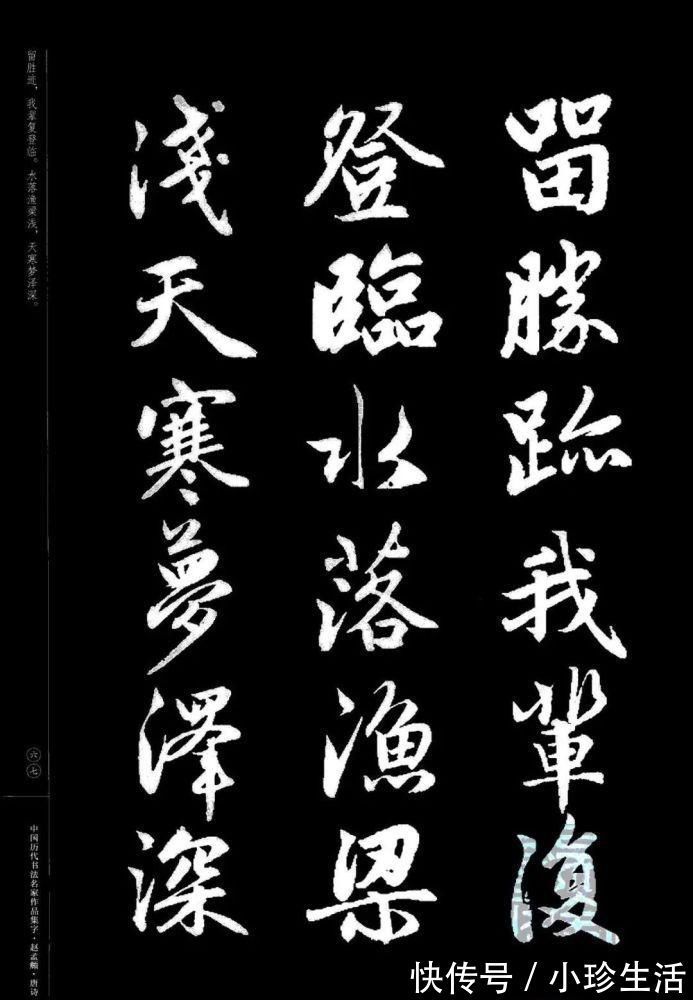 留勝跡我輩復
登臨水落漁梁
淺天寒夢澤深
留胜迹，我辈复登临。水落渔梁浅，天寒梦泽深。
六七
中国历代书法名家作品集字·赵孟頫·唐诗
快传号／小珍生活